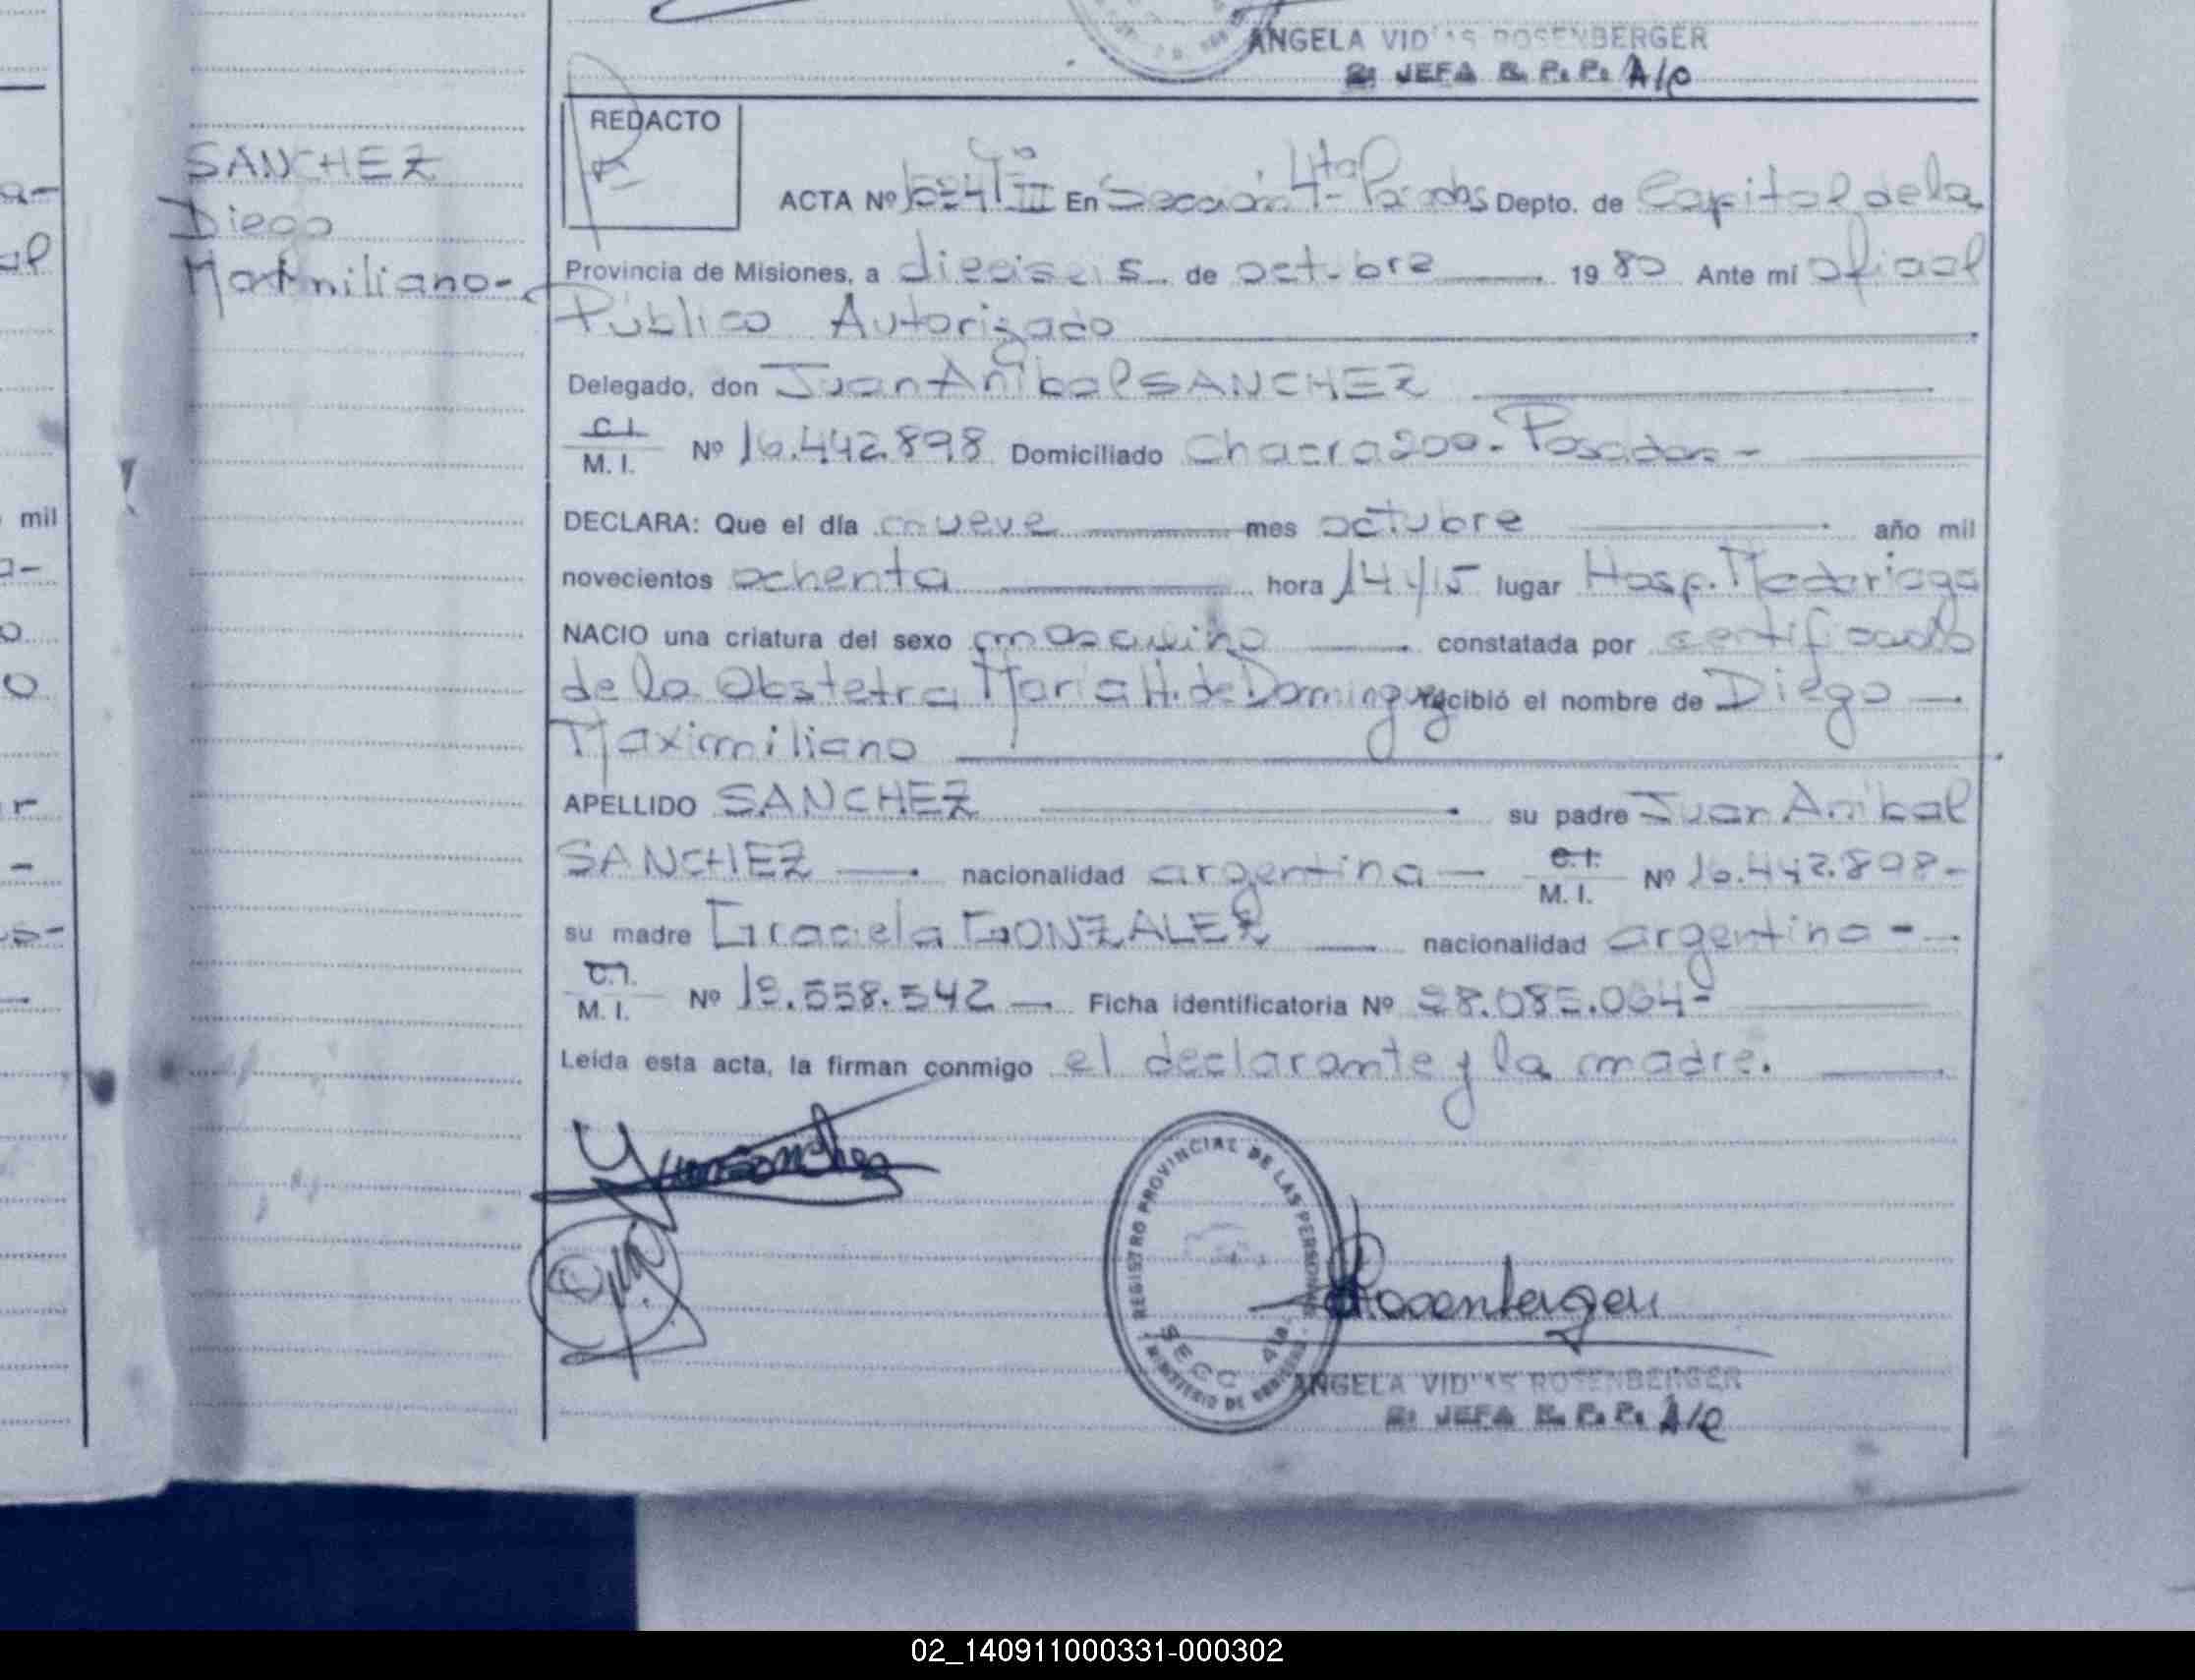 ANGELA VID ROSENBERGER
JEFA R. P. P. A/C
REDACTO
SANCHEZ
Diego
Maximiliano-
ACTA Nº TºIII En Sección 4ta Posadas Depto. de Capital de la
Provincia de Misiones, a dieciseis de octubre 1980 Ante mi oficial
Público Autorizado
Delegado, don Juan Anibal SANCHEZ
C.I.
M. I. Nº 16.442.898 Domiciliado Chacra 200 - Posadas -
DECLARA: Que el día nueve mes octubre año mil
novecientos ochenta hora 14,15 lugar Hosp. Madariaga
NACIO una criatura del sexo masculino constatada por certificado
de la Obstetra Maria H. de Dominguez recibió el nombre de Diego
Maximiliano
APELLIDO SANCHEZ su padre Juan Anibal
SANCHEZ nacionalidad argentina C.I.
M. I. Nº 16.442.898-
su madre Graciela GONZALEZ nacionalidad argentina -
C.I.
M. I. Nº .558.542 Ficha identificatoria Nº 28.085.064-
Leída esta acta, la firman conmigo el declarante y la madre.
REGISTRO PROVINCIAL DE LAS PERSONAS
MINISTERIO DE GOBIERNO
SECC 4ta
Rosenberger
ANGELA VID ROSENBERGER
JEFA R. P. P. A/C
mil
02_140911000331-000302